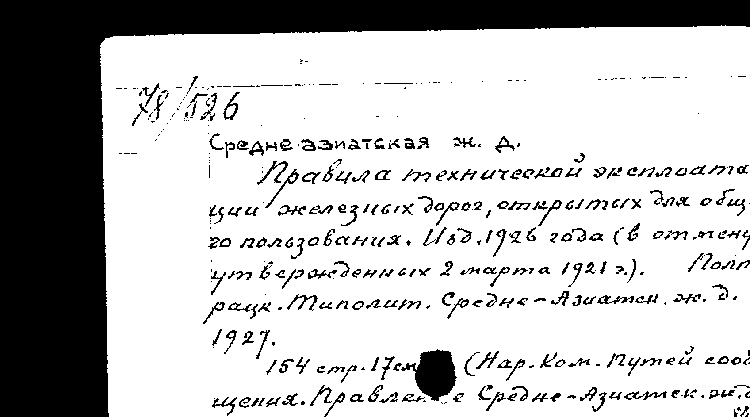 78/526
Средне-азиатская ж. д.
Правила технической эксплоата
ции железных дорог, открытых для общ
го пользования. Изд. 1926 года (в отмену
утвержденных 2 марта 1921 г.). Полт
рацк. Типолит. Средне-Азиатск. ж. д.
1927.
154 стр. 17см (Нар. Ком. Путей сооб
щения. Правление Средне-Азиатск. ж.д.